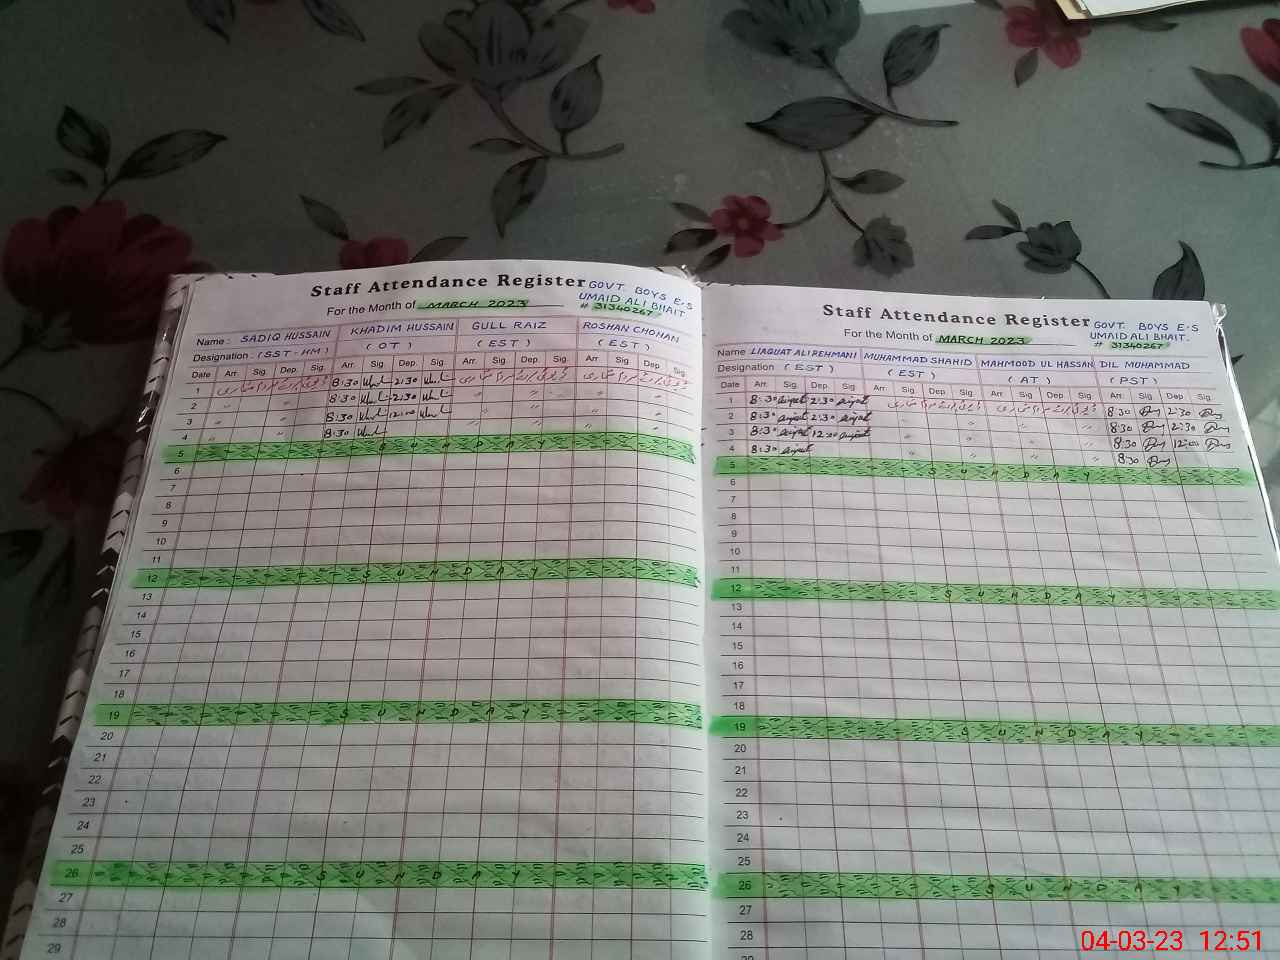 Staff Attendance Register GOVT. BOYS E.S
UMAID ALI BHAIT
For the Month of MARCH 2023 # 31340267
Name : SADIQ HUSSAIN KHADIM HUSSAIN GULL RAIZ ROSHAN CHOHAN
Designation : (SST-HM) (OT) (EST) (EST)
Date Arr. Sig. Dep. Sig. Arr. Sig Dep. Sig. Arr. Sig. Dep. Sig. Arr Sig. Dep. Sig.
1 8:30 2:30
2 " " 8:30 2:30 " " "
3 " " 8:30 12:00 " " "
4 " " 8:30
5 SUNDAY
6
7
8
9
10
11
12 SUNDAY
13
14
15
16
17
18
19 SUNDAY
20
21
22
23
24
25
26 SUNDAY
27
28
29
Staff Attendance Register GOVT. BOYS E.S
UMAID ALI BHAIT.
For the Month of MARCH 2023 # 31340267
Name LIAQUAT ALI REHMANI MUHAMMAD SHAHID MAHMOOD UL HASSAN DIL MUHAMMAD
Designation (EST) (EST) (AT) (PST)
Date Arr. Sig. Dep. Sig. Arr. Sig. Dep. Sig. Arr. Sig. Dep. Sig. Arr. Sig. Dep. Sig.
1 8:30 2:30 8:30 2:30
2 8:30 2:30 " " " " 8:30 2:30
3 8:30 12:00 " " " " 8:30 12:00
4 8:30 " " " " 8:30
5 SUNDAY
6
7
8
9
10
11
12 SUNDAY
13
14
15
16
17
18
19 SUNDAY
20
21
22
23
24
25
26 SUNDAY
27
28
29
04-03-23 12:51